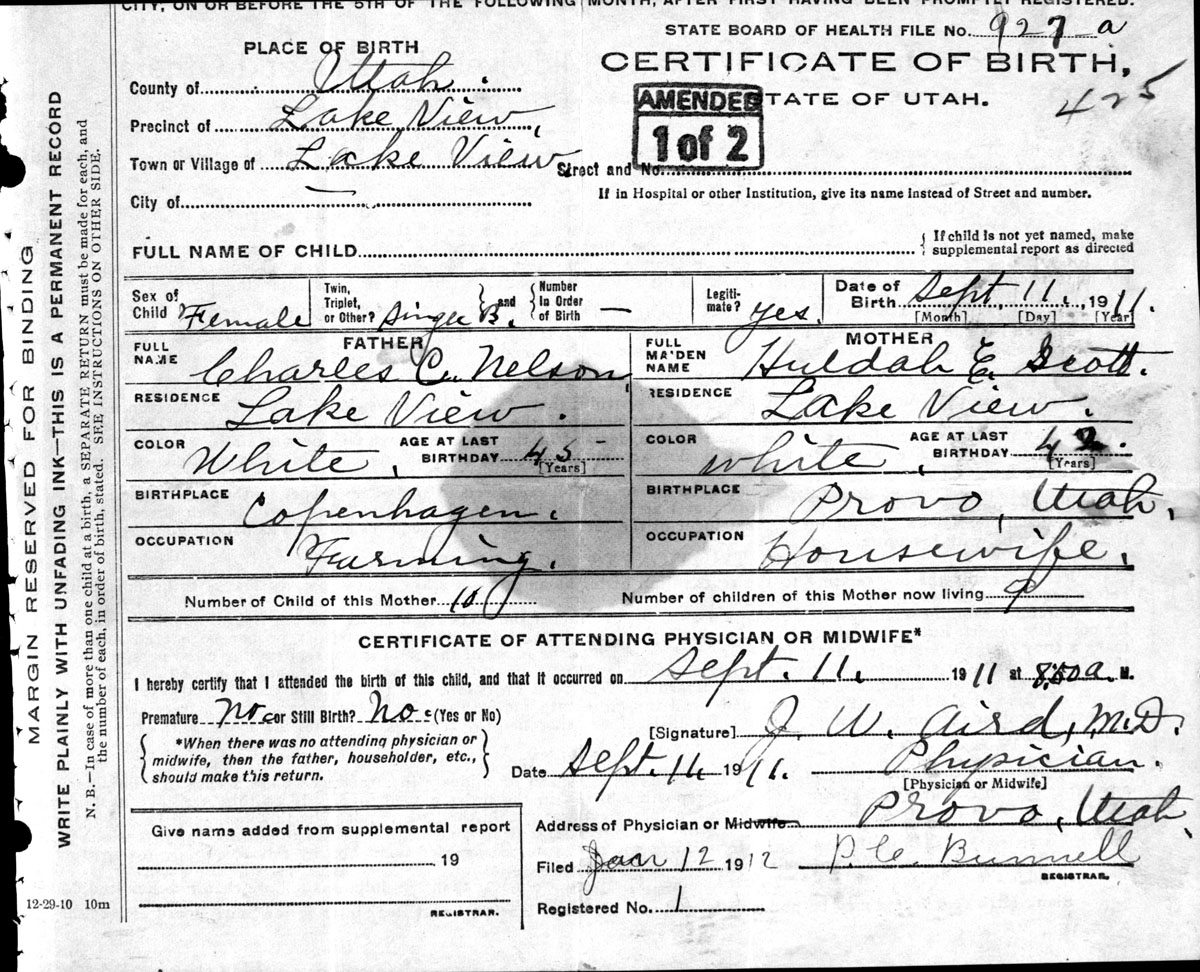 CITY, ON OR BEFORE THE 5TH OF THE FOLLOWING MONTH, AFTER FIRST HAVING BEEN PROMPTLY REGISTERED.
STATE BOARD OF HEALTH FILE No. 927 a
PLACE OF BIRTH
CERTIFICATE OF BIRTH,
County of Utah.
AMENDED STATE OF UTAH. 425
Precinct of Lake View,
1 of 2
Town or Village of Lake View Street and No.
City of —
If in Hospital or other Institution, give its name instead of Street and number.
FULL NAME OF CHILD { If child is not yet named, make
supplemental report as directed
Sex of Child Female Twin, Triplet, or Other? Single B. } and { Number In Order of Birth — Legiti-mate? Yes. Date of Birth Sept 11, 1911
[Month] [Day] [Year]
FATHER MOTHER
FULL NAME Charles C. Nelson FULL MAIDEN NAME Huldah E. Scott.
RESIDENCE Lake View. RESIDENCE Lake View.
COLOR White, AGE AT LAST BIRTHDAY 45 – COLOR white, AGE AT LAST BIRTHDAY 42.
[Years] [Years]
BIRTHPLACE Copenhagen. BIRTHPLACE Provo, Utah,
OCCUPATION Farming. OCCUPATION Housewife,
Number of Child of this Mother 10 Number of children of this Mother now living 9
CERTIFICATE OF ATTENDING PHYSICIAN OR MIDWIFE*
I hereby certify that I attended the birth of this child, and that it occurred on Sept. 11, 1911 at a. M.
Premature No or Still Birth? No (Yes or No)
[Signature] J. W. Aird, M.D.
{ *When there was no attending physician or
midwife, then the father, householder, etc.,
should make this return. }
Date Sept. 1911. Physician.
[Physician or Midwife]
Address of Physician or Midwife Provo, Utah
Give name added from supplemental report
Filed Jan 12 1912 P. C. Bunnell
19
REGISTRAR.
Registered No. 1
REGISTRAR.
12-29-10 10m
MARGIN RESERVED FOR BINDING
WRITE PLAINLY WITH UNFADING INK—THIS IS A PERMANENT RECORD
N. B.—In case of more than one child at a birth, a SEPARATE RETURN must be made for each, and
the number of each, in order of birth, stated. SEE INSTRUCTIONS ON OTHER SIDE.